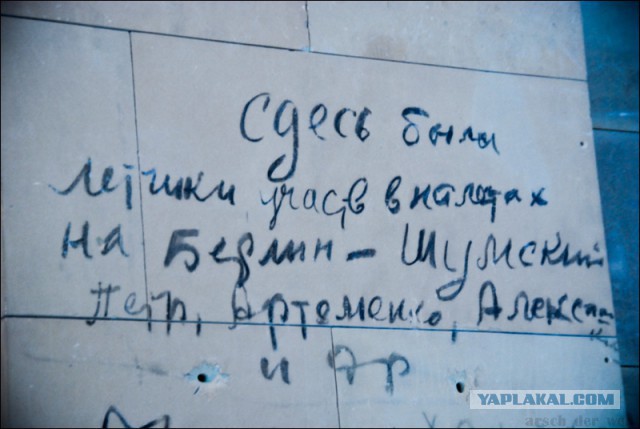 Сдесь были
летчики, участв в налетах
на Берлин – Шумский
Петр, Артеменко, Алекс
и др
YAPLAKAL.COM